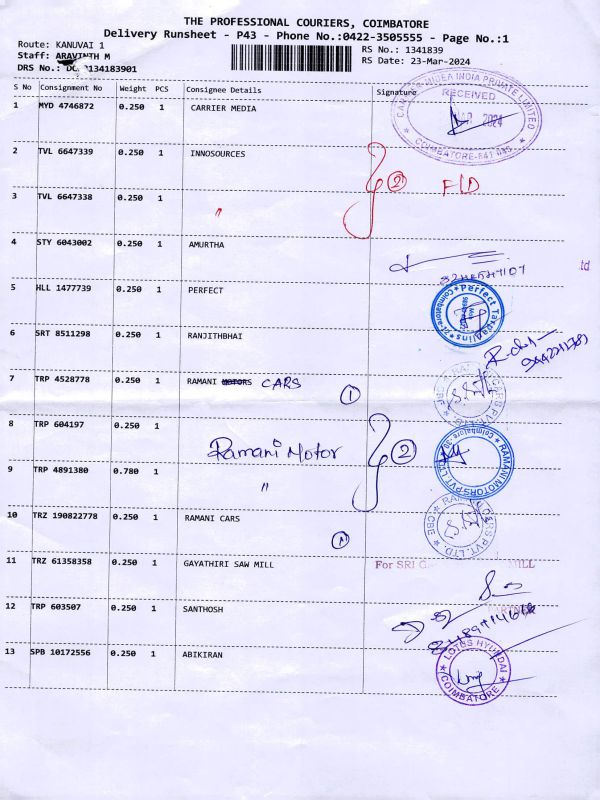 THE PROFESSIONAL COURIERS, COIMBATORE
Delivery Runsheet - P43 - Phone No.:0422-3505555 - Page No.:1
Route: KANUVAI 1
RS No.: 1341839
Staff: ARAVINTH M
RS Date: 23-Mar-2024
DRS No.: 2134183901
S No Consignment No Weight PCS Consignee Details Signature
1 MYD 4746872 0.250 1 CARRIER MEDIA
RECEIVED
2024
COIMBATORE-641
2 TVL 6647339 0.250 1 INNOSOURCES
2 F/D
3 TVL 6647338 0.250 1 "
4 STY 6043002 0.250 1 AMURTHA
td
5 HLL 1477739 0.250 1 PERFECT
Perfect
Coimbatore
6 SRT 8511298 0.250 1 RANJITHBHAI
7 TRP 4528778 0.250 1 RAMANI MOTORS CARS
1
8 TRP 604197 0.250 1
Ramani Motor 2
RAMANI MOTORS PVT LTD
Coimbatore
9 TRP 4891380 0.780 1 "
10 TRZ 190822778 0.250 1 RAMANI CARS
PVT. LTD. CBE
11 TRZ 61358358 0.250 1 GAYATHIRI SAW MILL
For SRI G MILL
12 TRP 603507 0.250 1 SANTHOSH
13 SPB 10172556 0.250 1 ABIKIRAN
LOTUS HYUNDAI
COIMBATORE